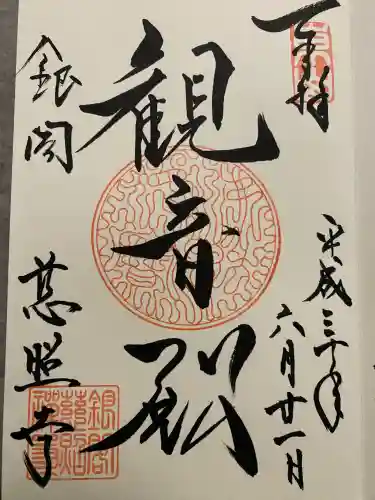 奉拝
平成三十年
六月廿一日
観音殿
銀閣
慈照寺
銀閣
慈照
禅寺